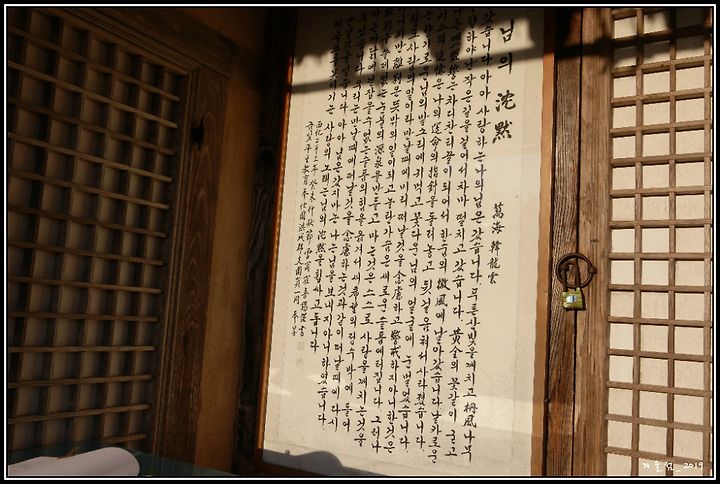 님의 沈默
萬海 韓龍雲
갔습니다 아아 사랑하는 나의 님은 갔습니다. 푸른 산빛을 깨치고 丹風나무
향하야 난 작은 길을 걸어서 차마 떨치고 갔습니다. 黃金의 꽃같이 굳고
차디찬 티끌이 되어서 한숨의 微風에 날아갔습니다 날카로운
키스의 追憶은 나의 運命의 指針을 돌려놓고 뒷걸음쳐서 사라졌습니다.
기로운 님의 말소리에 귀먹고 꽃다운 님의 얼굴에 눈멀었습니다.
사람의 일이라 만날 때에 미리 떠날 것을 念慮하고 警戒하지 아니한 것은
지만 離別은 뜻밖의 일이 되고 놀란 가슴은 새로운 슬픔에 터집니다. 그러나
쓸데없는 눈물의 源泉을 만들고 마는 것은 스스로 사랑을 깨치는 것을
까닭에 걷잡을 수 없는 슬픔의 힘을 옮겨서 새 希望의 정수박이에 들어
우리는 만날 때에 떠날 것을 念慮하는 것과 같이 떠날 때에 다시
것을 믿습니다. 아아 님은 갔지마는 나는 님을 보내지 아니하였습니다.
못 이기는 사랑의 노래는 님의 沈默을 휩싸고 돕니다
西紀二千三年 癸未 仲秋節
겨울섬_2019